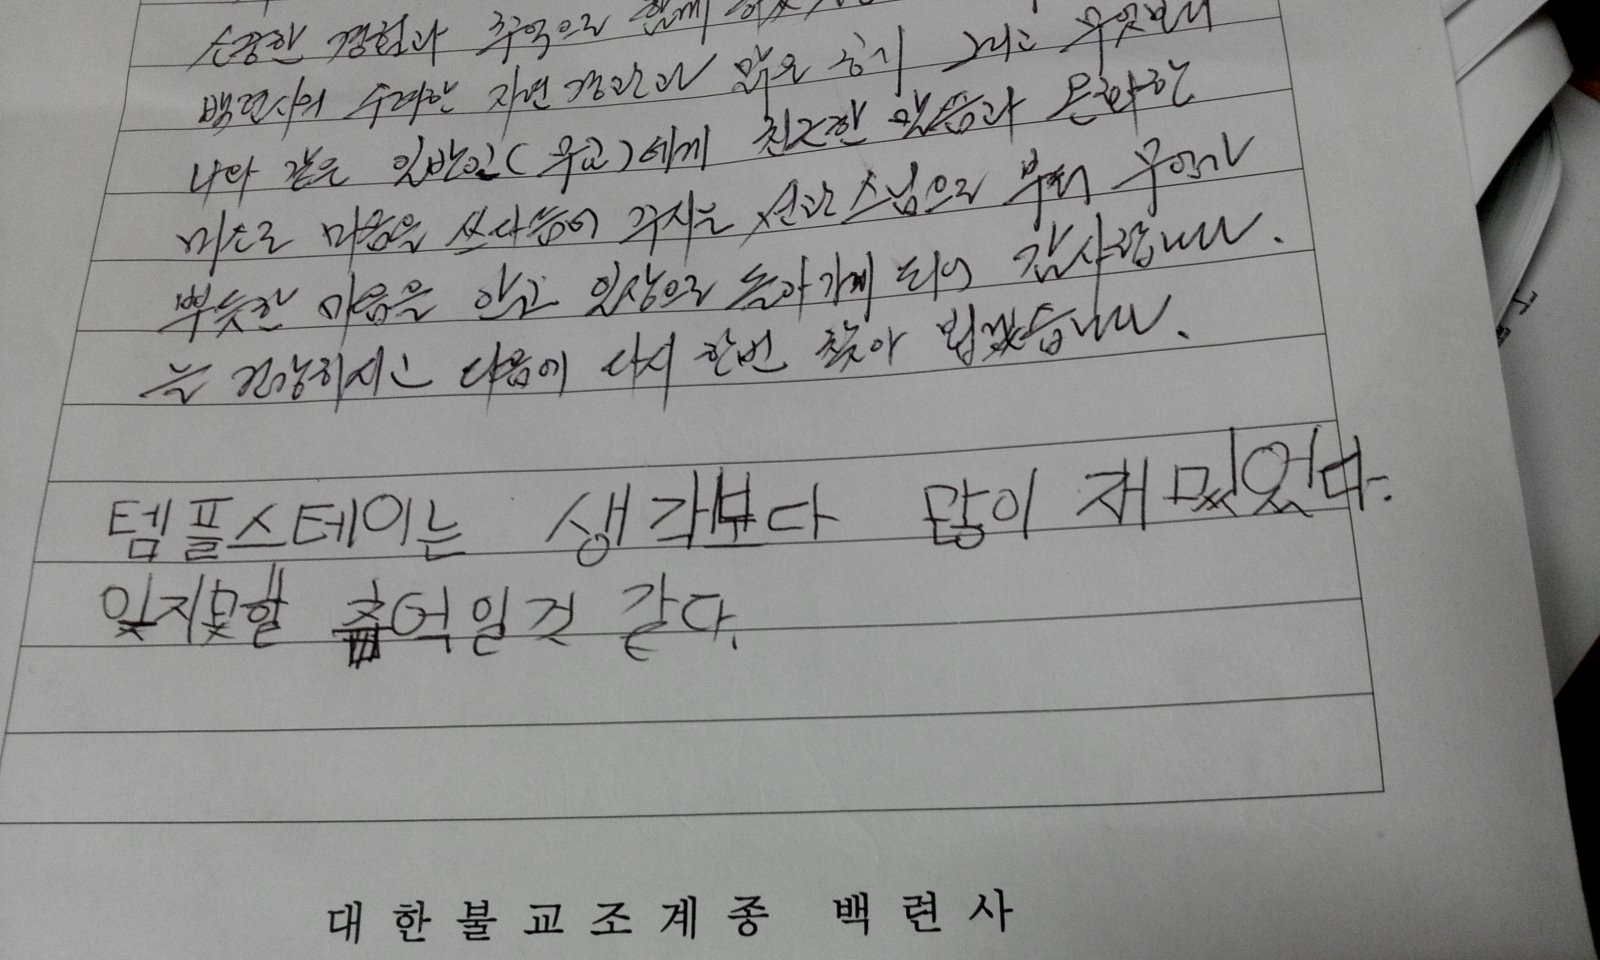 소중한 경험과 추억으로 함께
백련사의 수려한 자연경관과 맑은 공기 그리고 무엇보다
나와 같은 일반인(무교)에게 친근한 말씀과 온화한
미소로 마음을 쓰다듬어 주시는 선관스님으로 부터 무언가
뿌듯한 마음을 안고 일상으로 돌아가게 되어 감사합니다.
늘 건강하시고 다음에 다시 한번 찾아 뵙겠습니다.
템플스테이는 생각보다 많이 재밌었다.
잊지못할 추억일것 같다.
대한불교조계종 백련사